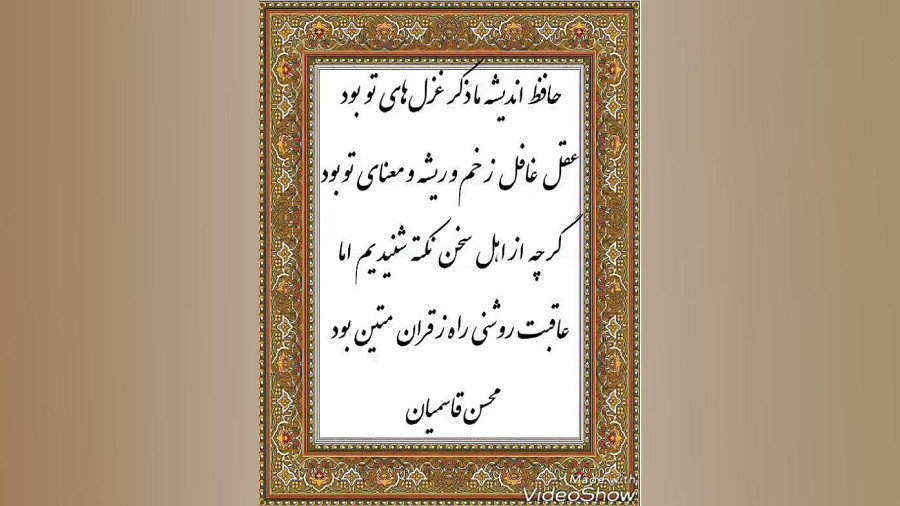 حافظ اندیشه ما ذکر غزل‌های تو بود
عقل غافل ز خم و ریشه و معنای تو بود
گرچه از اهل سخن نکته شنیدیم اما
عاقبت روشنی راه ز قران متین بود
محسن قاسمیان
Made with
VideoShow